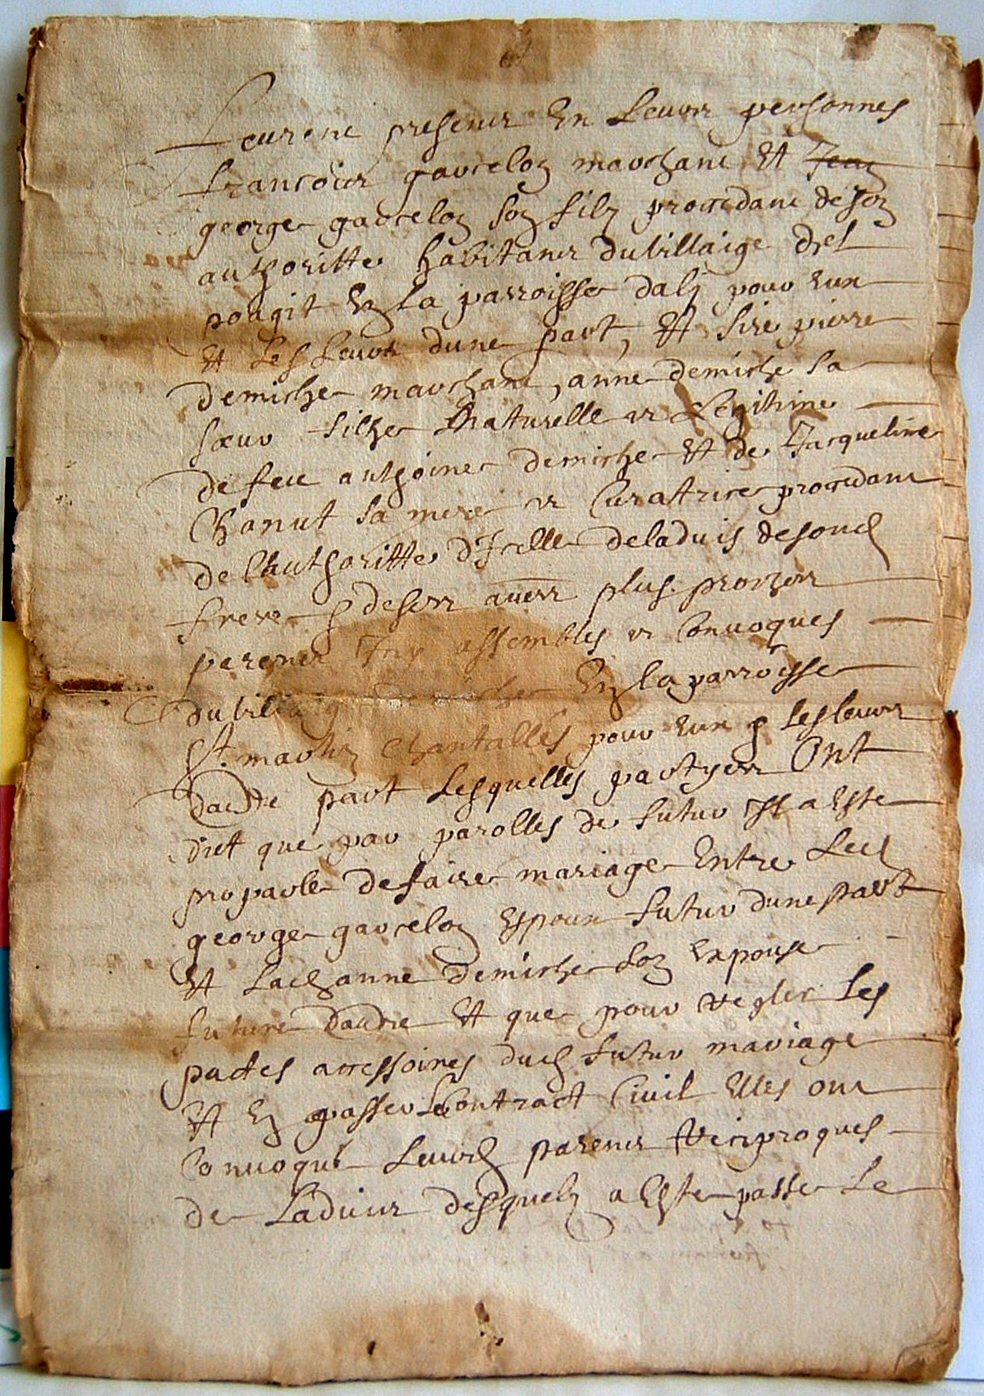 Feurent presents En Leurs personnes
francois garcelon marchant Et Jean
george garcelon son filz procedant de son
authoritte habitants du villaige del
pougit En la parroisse daly pour eux
Et Les Leurs dune part, Et sire pierre
demiche marchant, anne demiche sa
sœur filhe Naturelle et Legitime
de feu anthoine demiche Et de Jacqueline
Chanut sa mere et Curatrice procedant
de lauthoritte d'Icelle de laduis de son d
frere & de ses aues plus prochens
parents Icy assembles et Conuoques
du villaige demiche En la parroisse
St. martin Chantalles pour eux & les leurs
dautre part Lesquelles partyes Ont
dict que par parolles de futur Il a Este
proparle de faire mariage Entre Led
george garcelon Espoux futur dune part
Et Lad anne demiche son Expouse
future dautre Et que pour regler Les
pactes accessoires dud futur mariage
Et En passer Le Contract Ciuil Elles ont
Conuoque Leursd parents Reciproques
de Laduis desquelz a Este passe Le